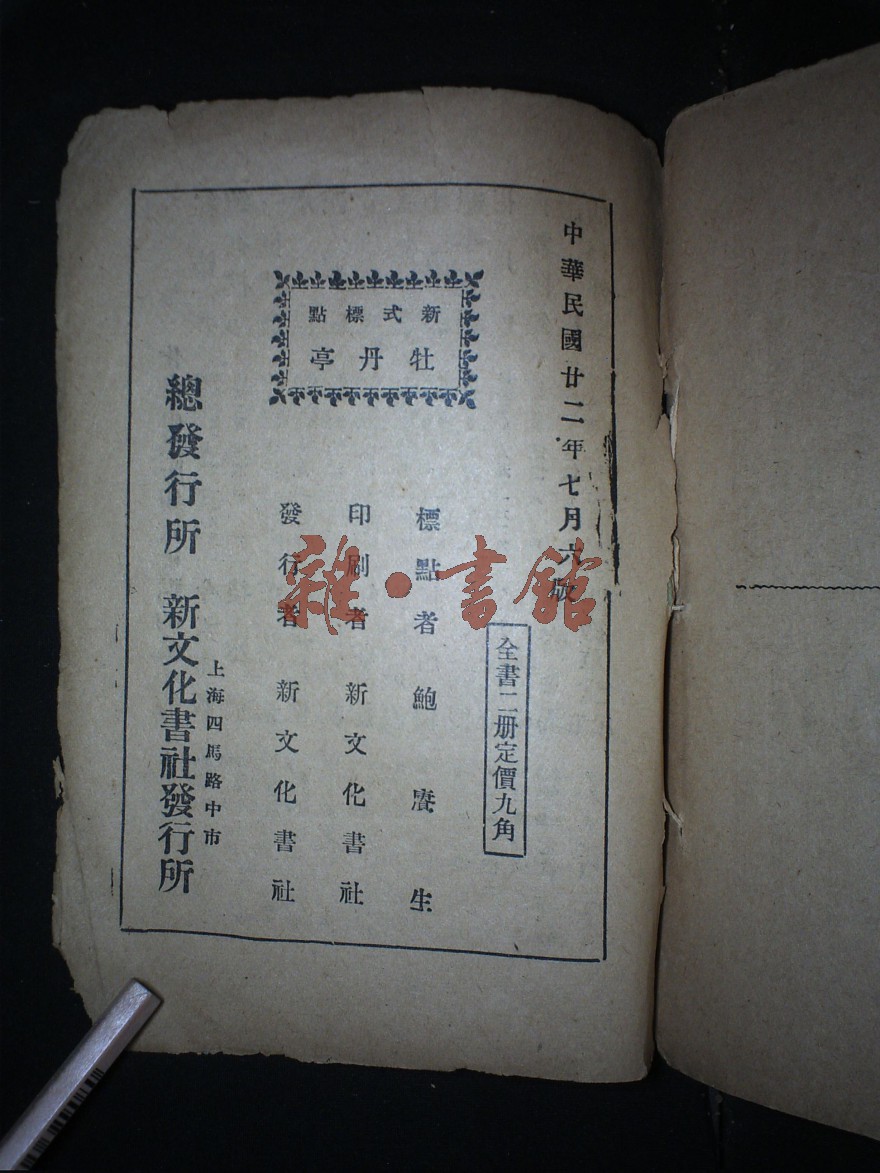 中華民國廿二年七月六版
全書二册定價九角
新式標點
牡丹亭
標點者 鮑賡生
印刷者 新文化書社
發行者 新文化書社
上海四馬路中市
總發行所 新文化書社發行所
雜·書館